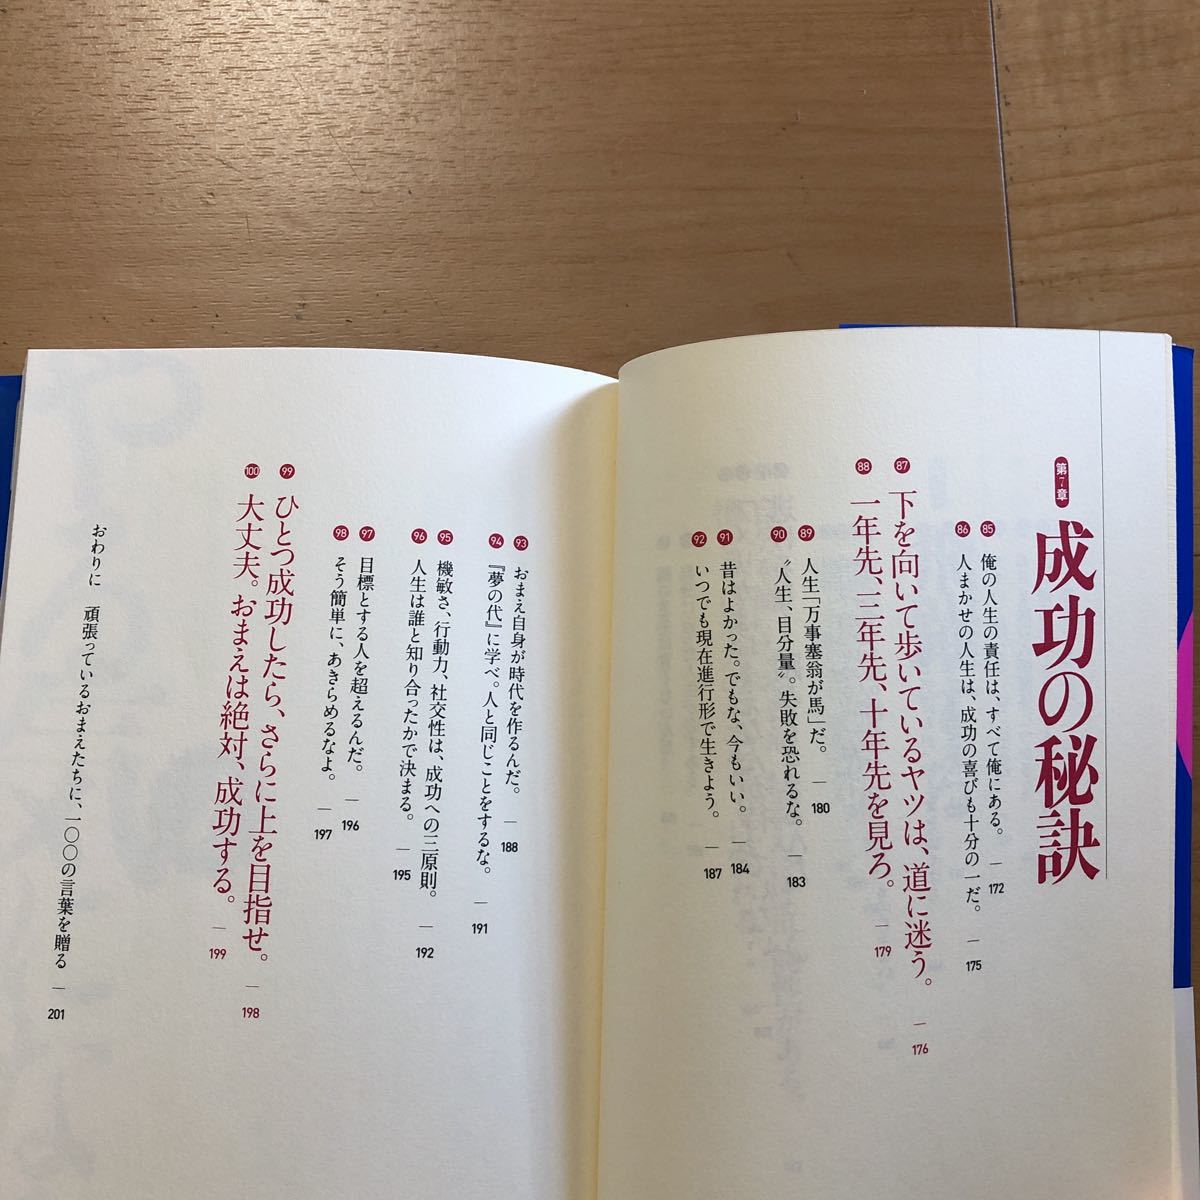 第7章
成功の秘訣
85 俺の人生の責任は、すべて俺にある。 — 172
86 人まかせの人生は、成功の喜びも十分の一だ。 — 175
87 下を向いて歩いているヤツは、道に迷う。 — 176
88 一年先、三年先、十年先を見ろ。 — 179
89 人生「万事塞翁が馬」だ。 — 180
90 〝人生、目分量〟。失敗を恐れるな。 — 183
91 昔はよかった。でもな、今もいい。 — 184
92 いつでも現在進行形で生きよう。 — 187
93 おまえ自身が時代を作るんだ。 — 188
94 『夢の代』に学べ。人と同じことをするな。 — 191
95 機敏さ、行動力、社交性は、成功への三原則。 — 192
96 人生は誰と知り合ったかで決まる。 — 195
97 目標とする人を超えるんだ。 — 196
98 そう簡単に、あきらめるなよ。 — 197
99 ひとつ成功したら、さらに上を目指せ。 — 198
100 大丈夫。おまえは絶対、成功する。 — 199
おわりに 頑張っているおまえたちに、一〇〇の言葉を贈る — 201